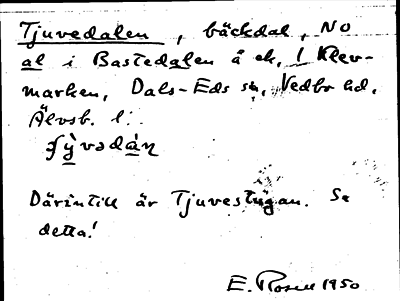 Tjuvedalen, bäckdal, NO
al i Bastedalen å ek. 1 Klev-
marken, Dals-Eds sn, Vedbo hd,
Älvsb. l.
Därintill är Tjuvestugan. Se
detta!
E. Rosell 1950